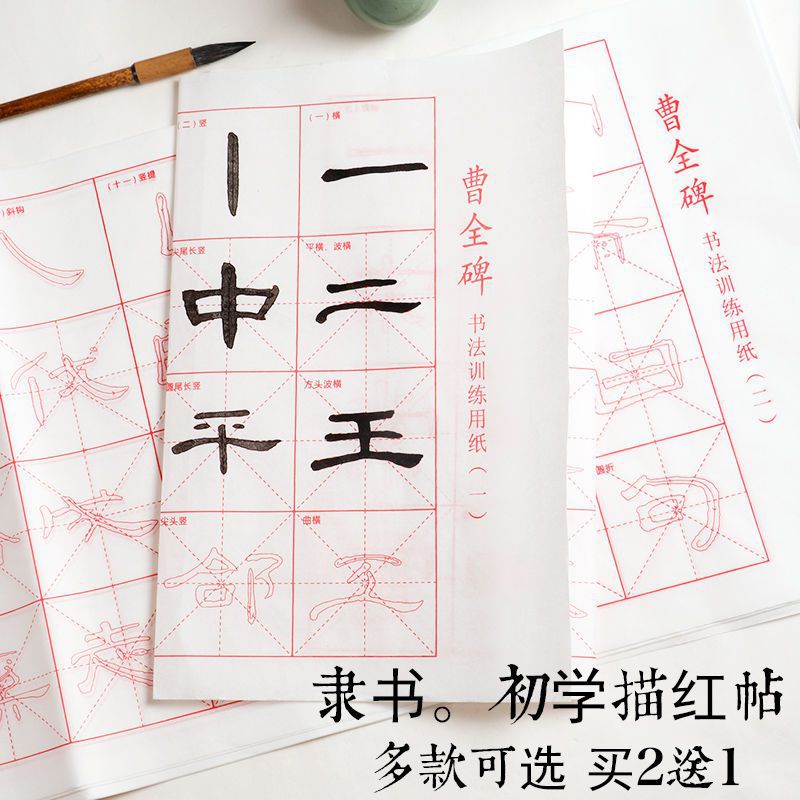 曹全碑 书法训练用纸（一）
（一）横
一
平横、波横
二
方头波横
王
曲横
（二）竖
丨
尖尾长竖
中
圆尾长竖
平
尖头竖
郃
曹全碑 书法训练用纸（二）
圆折
（十一）竖提
斜钩
隶书。初学描红帖
多款可选 买2送1